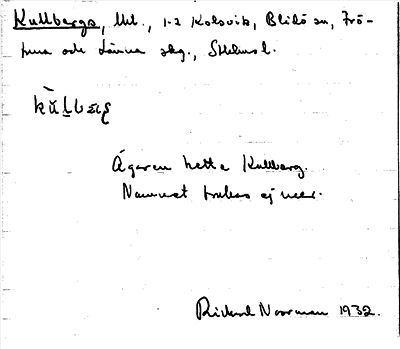 Kullbergs, lht., 1-2 Kolsvik, Blidö sn, Frö-
tuna och Länna skg., Sthlms l.
kùl̠bærg
Ägaren hette Kullberg.
Namnet brukas ej mer.
Rickard Noorman 1932.